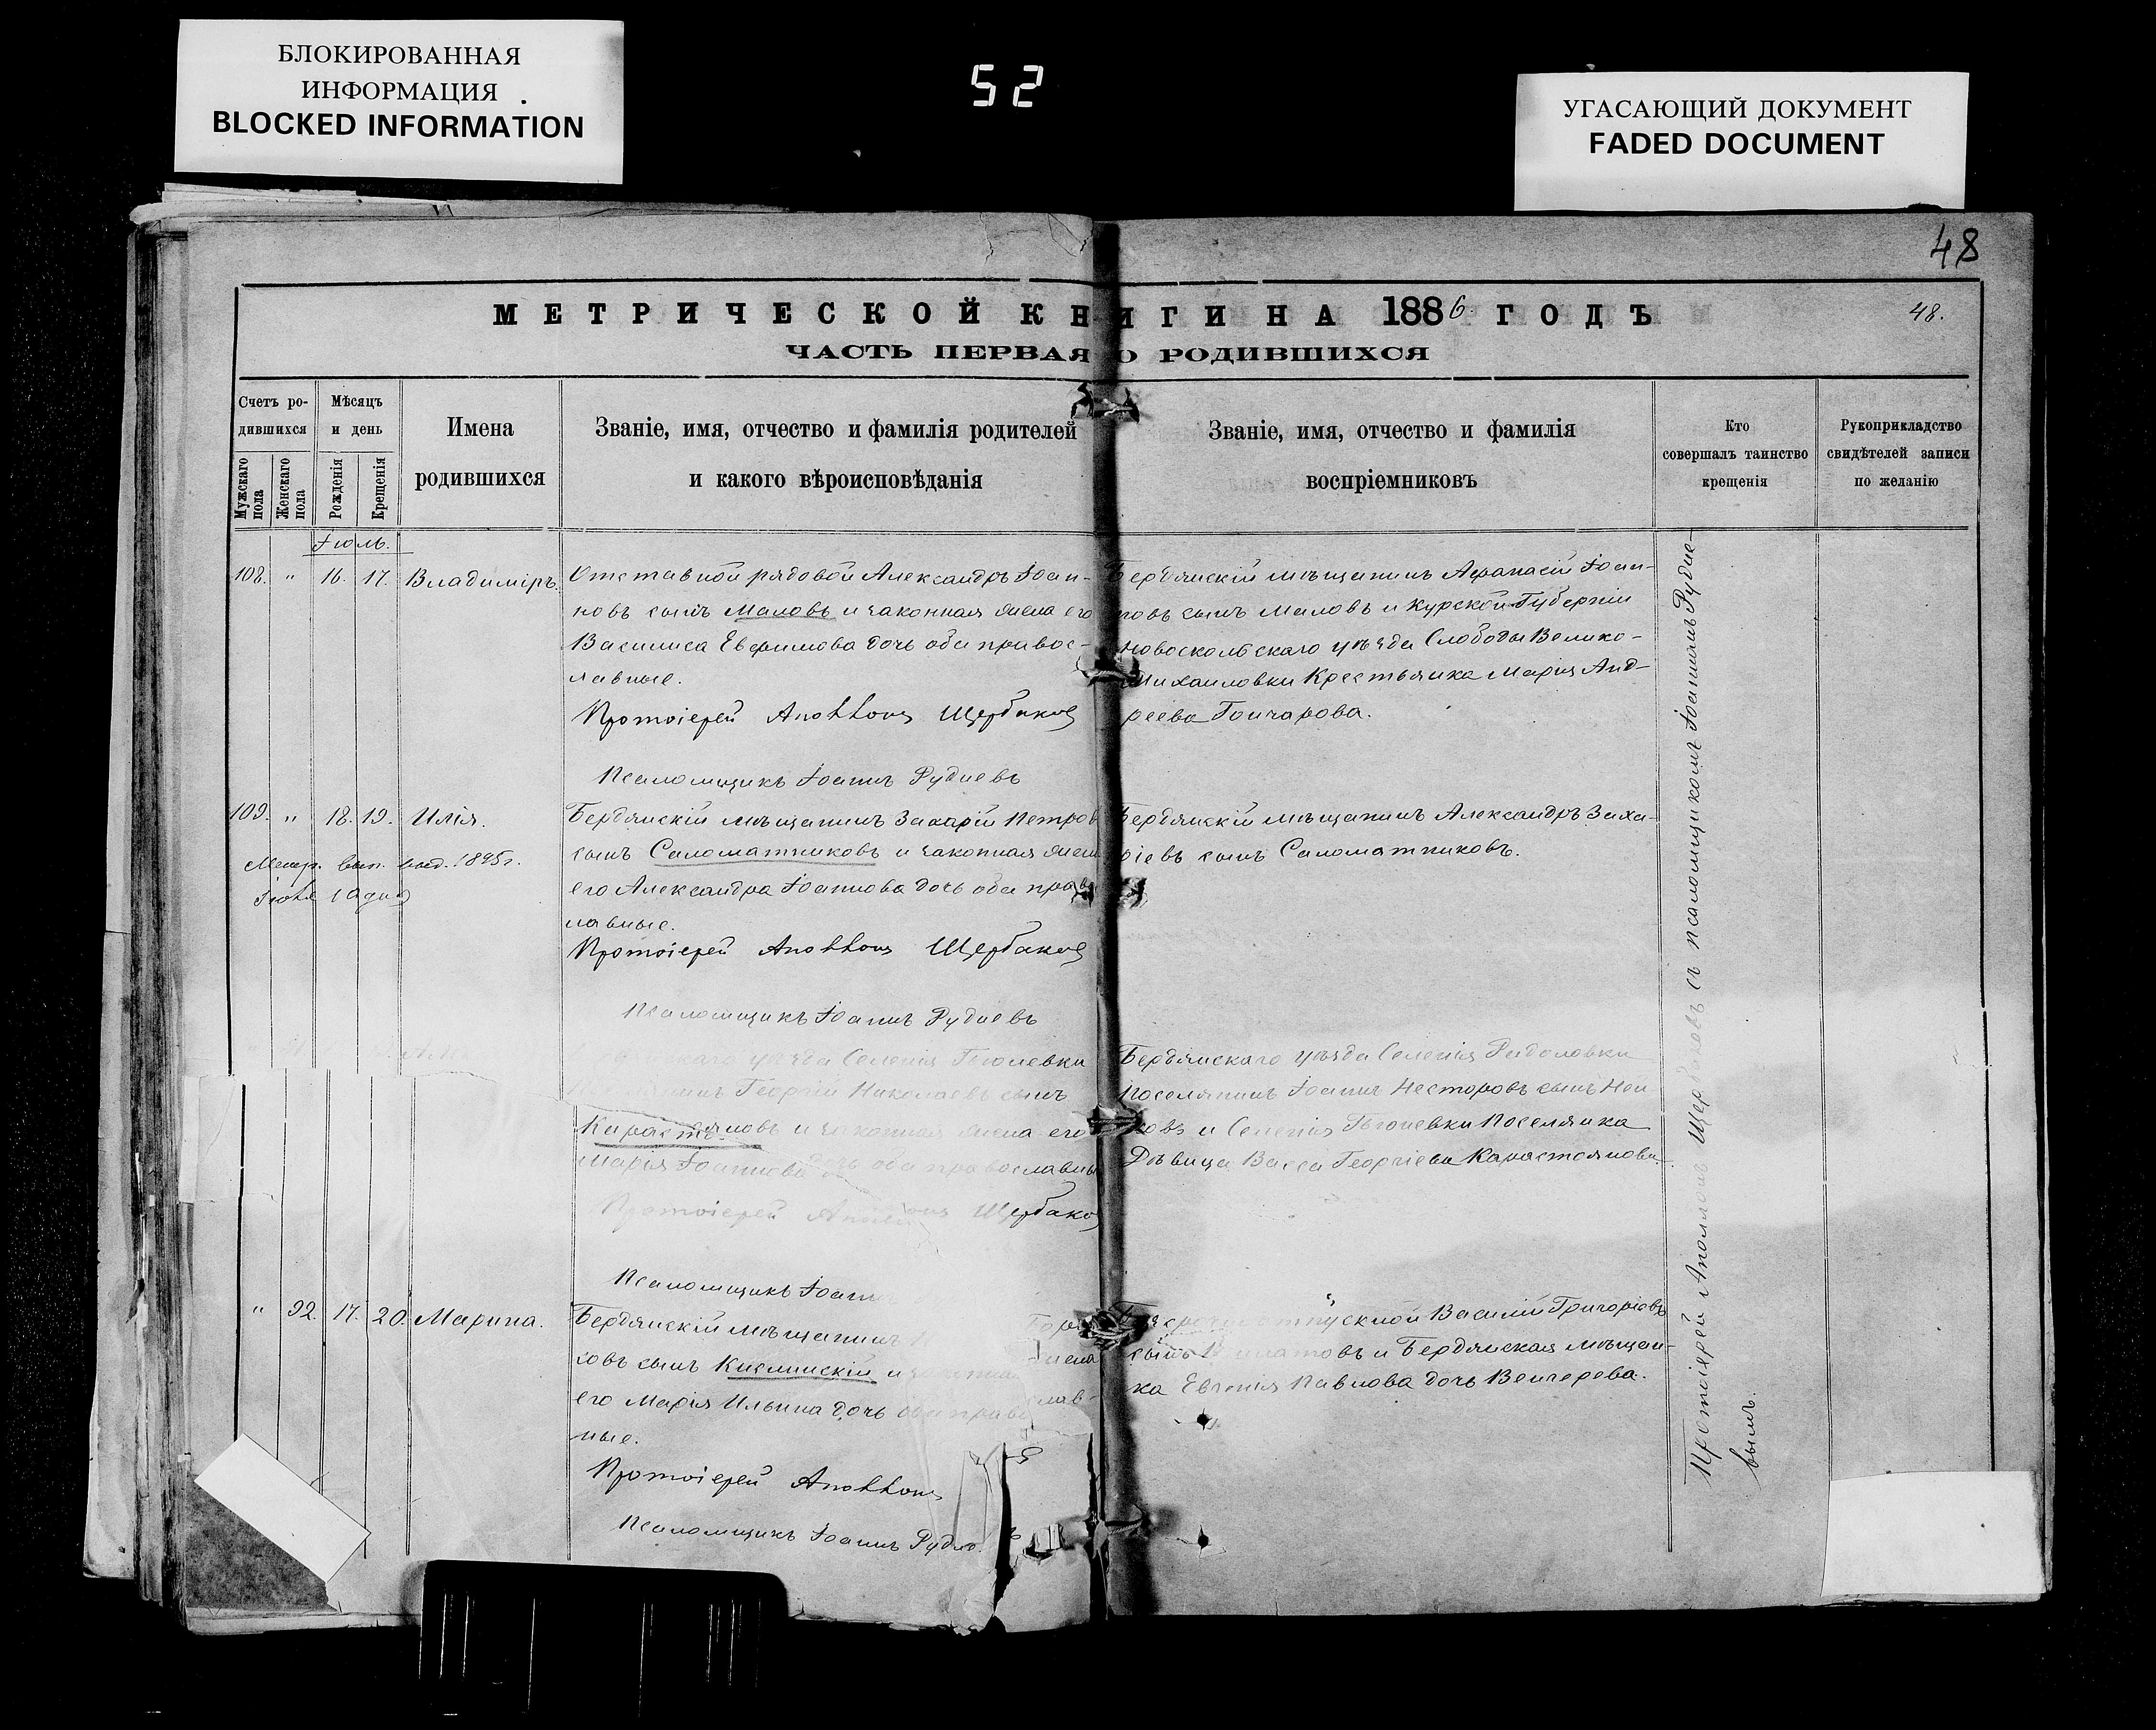 БЛОКИРОВАННАЯ
ИНФОРМАЦИЯ
BLOCKED INFORMATION
52
УГАСАЮЩИЙ ДОКУМЕНТ
FADED DOCUMENT
48
МЕТРИЧЕСКОЙ КНИГИ НА 1886 ГОДЪ
48.
ЧАСТЬ ПЕРВАЯ О РОДИВШИХСЯ
Счетъ ро-
дившихся
Мужскаго пола
Женскаго пола
Мѣсяцъ
и день
Рожденія
Крещенія
Имена
родившихся
Званіе, имя, отчество и фамилія родителей
и какого вѣроисповѣданія
Званіе, имя, отчество и фамилія
воспріемниковъ
Кто
совершалъ таинство
крещенія
Рукоприкладство
свидѣтелей записи
по желанію
Іюль.
108. " 16. 17. Владиміръ.
Отставной рядовой Александръ Іоан-
новъ сынъ Маловъ и законная жена его
Василиса Евфимова дочь оба правос-
лавные.
Протоіерей Аполлонъ Щербаковъ
Псаломщикъ Іоаннъ Рудневъ
Бердянскій мѣщанинъ Афанасій Іоан-
новъ сынъ Маловъ и Курской Губерніи
Новооскольскаго уѣзда Слободы Велико-
Михаиловки Крестьянка Марія Анд-
реева Гончарова.
109. " 18. 19. Илія.
Метр. вып. выд. 1895 г.
Бердянскій мѣщанинъ Захарій Петров
сынъ Саломатниковъ и законная жена
его Александра Іоаннова дочь оба прав
лавные.
Протоіерей Аполлонъ Щербаковъ
Псаломщикъ Іоаннъ Рудневъ
Бердянскій мѣщанинъ Александръ Заха-
ріевъ сынъ Саломатниковъ.
уѣзда Селенія Гюневки
Георгій Николаевъ сынъ
и законная жена его
Марія Іоаннова дочь оба православны
Протоіерей Щербаков
Псаломщикъ Іоаннъ
Бердянскаго уѣзда Селенія Радоловки
Поселянинъ Іоаннъ Несторовъ сынъ
и Селенія Гюневки Поселянка
Дѣвица Васса Георгіева Карастоянова.
" 92. 17. 20. Марина.
Бердянскій мѣщанинъ
сынъ Кислинскій и жена
его Марія Ильина дочь оба православ-
ные.
Протоіерей Аполлонъ
Псаломщикъ Іоаннъ
Василій Григоріевъ
сынъ и Бердянская мѣщан-
ка Евгенія Павлова дочь Венгерева.
Протоіерей Аполлонъ Щербаковъ съ псаломщикомъ Іоанномъ Рудне-
вымъ.